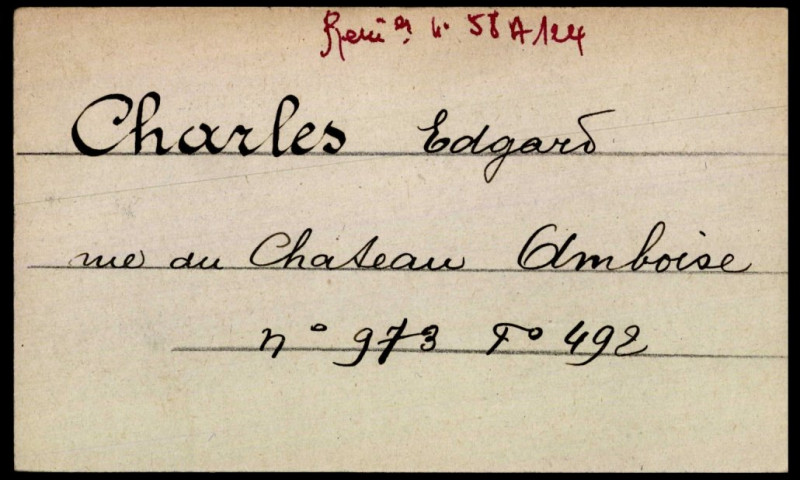 n° 58 A 124
Charles Edgard
rue du Chateau Amboise
n° 973 F° 492